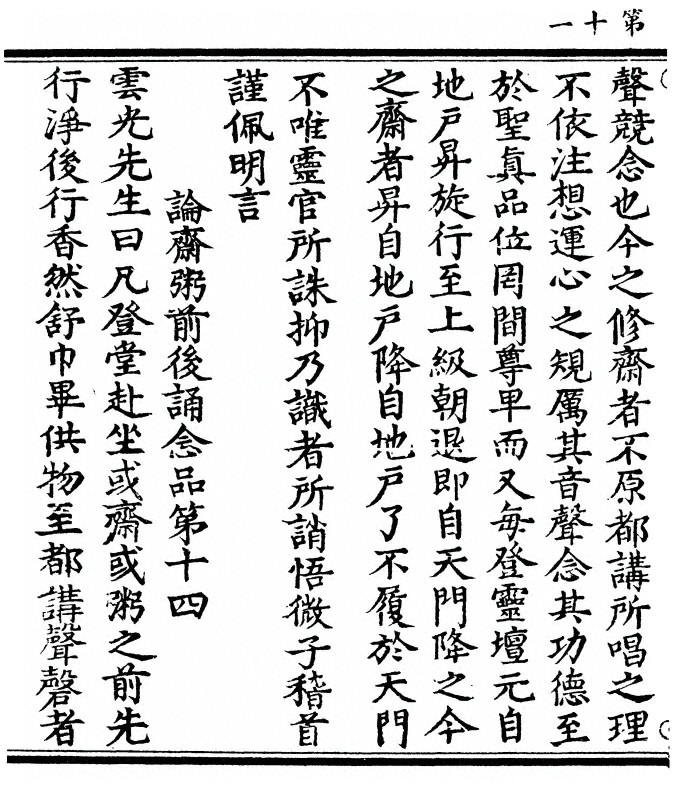 第十一
聲競念也今之修齋者不原都講所唱之理
不依注想運心之䂓厲其音聲念其功德至
於聖眞品位罔間尊卑而又每登靈壇元自
地戶昇旋行至上級朝退即自天門降之今
之齋者昇自地戶降自地戶了不履於天門
不唯靈官所誅抑乃識者所誚悟微子稽首
謹佩明言
論齋粥前後誦念品第十四
雲光先生曰凡登堂赴坐或齋或粥之前先
行淨後行香然舒巾畢供物至都講聲磬者